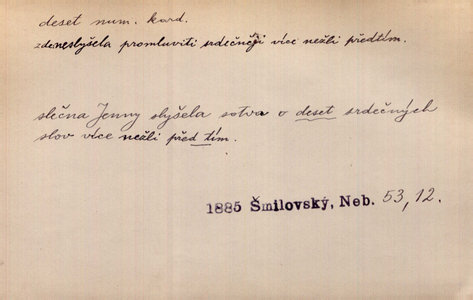 deset num. kard.
zde neslyšela promluviti srdečněji více nežli předtím.
slečna Jenny slyšela sotva o deset srdečných
slov více nežli před tím.
1885 Šmilovský, Neb. 53, 12.